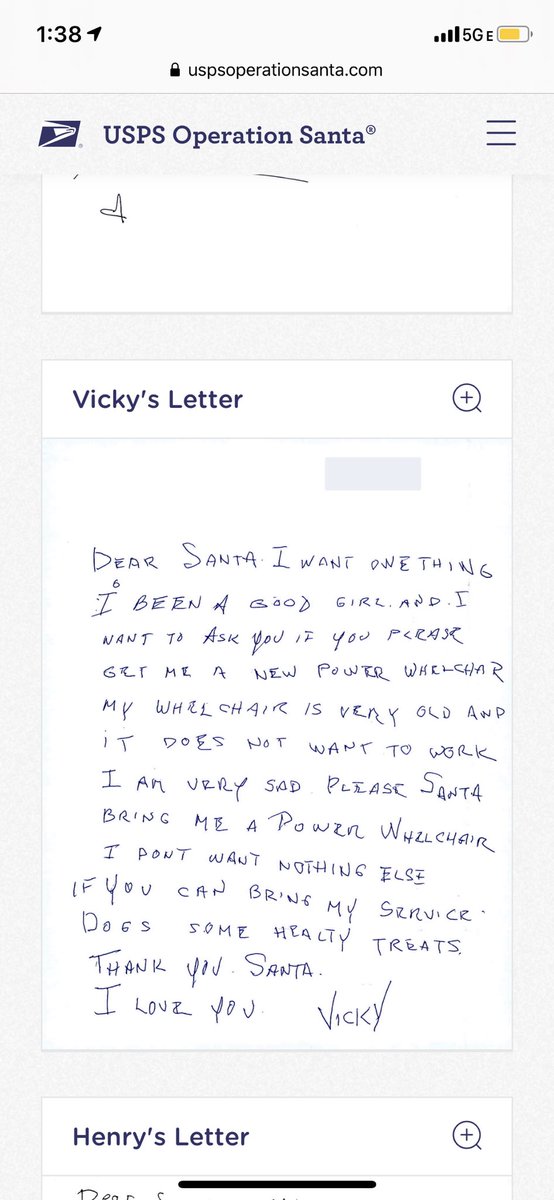 1:38
5GE
uspsoperationsanta.com
USPS Operation Santa®
Vicky's Letter
DEAR SANTA. I WANT ONE THING
I BEEN A GOOD GIRL. AND. I
WANT TO ASK YOU IF YOU PLEASE
GET ME A NEW POWER WHELCHAR
MY WHELCHAIR IS VERY OLD AND
IT DOES NOT WANT TO WORK
I AM VERY SAD. PLEASE SANTA
BRING ME A POWER WHELCHAIR
I DONT WANT NOTHING ELSE
IF YOU CAN BRING MY SERVICE.
DOGS SOME HEALTY TREATS.
THANK YOU. SANTA.
I LOVE YOU. VICKY
Henry's Letter